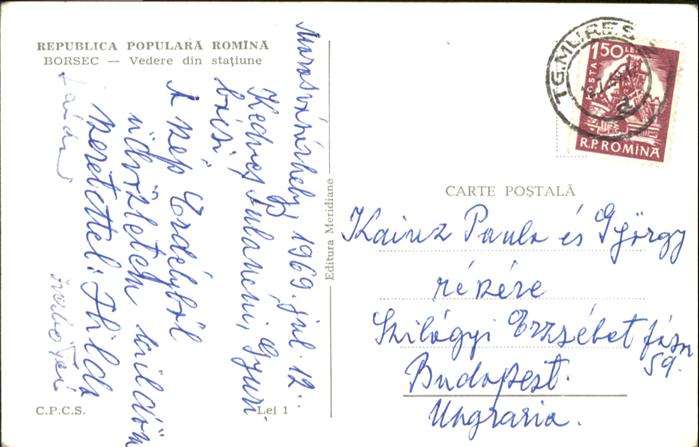 REPUBLICA POPULARĂ ROMÎNĂ
BORSEC — Vedere din stațiune
Marosvásárhely, 1969. júl. 12.
Kedves Pulaneni, Gyuri
bácsi
A szép Erdélyből
üdvözletem küldöm
szeretettel: Ihilda
C.P.C.S.
Lei 1
Editura Meridiane
TG. MUREȘ
POSTA
1,50 LEI
R.P.ROMÎNA
CARTE POȘTALĂ
Kainz Paula és György
részére
Szilágyi Erzsébet fasor
59.
Budapest.
Ungraria.